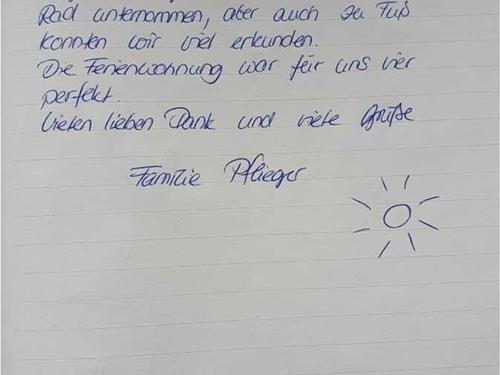 Rad unternommen, aber auch zu Fuß
konnten wir viel erkunden.
Die Ferienwohnung war für uns vier
perfekt.
Vielen lieben Dank und viele Grüße
Familie Pflieger